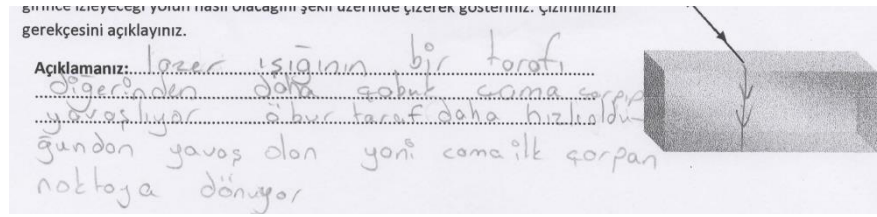 girince izleyeceği yolun nasıl olacağını şekil üzerinde çizerek gösteriniz. Çiziminizin
gerekçesini açıklayınız.
Açıklamanız: lazer ışığının bir tarafı
diğerinden daha çabuk cama çarpıp
yavaşlıyor öbür taraf daha hızlı oldu-
ğundan yavaş olan yani cama ilk çarpan
noktaya dönüyor